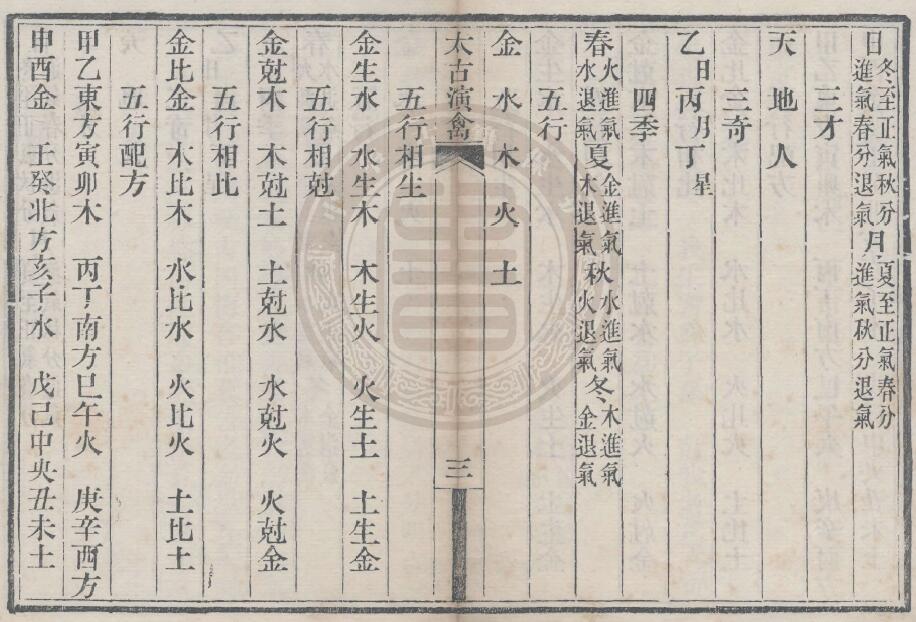 日冬至正氣秋分進氣春分退氣月夏至正氣春分進氣秋分退氣
三才
天 地 人
三奇
乙日丙月丁星
四季
春火進氣水退氣夏金進氣木退氣秋水進氣火退氣冬木進氣金退氣
五行
金 水 木 火 土
太古演禽 三
五行相生
金生水 水生木 木生火 火生土 土生金
五行相尅
金尅木 木尅土 土尅水 水尅火 火尅金
五行相比
金比金 木比木 水比水 火比火 土比土
五行配方
甲乙東方寅卯木 丙丁南方巳午火 庚辛酉方
申酉金 壬癸北方亥子水 戊己中央丑未土